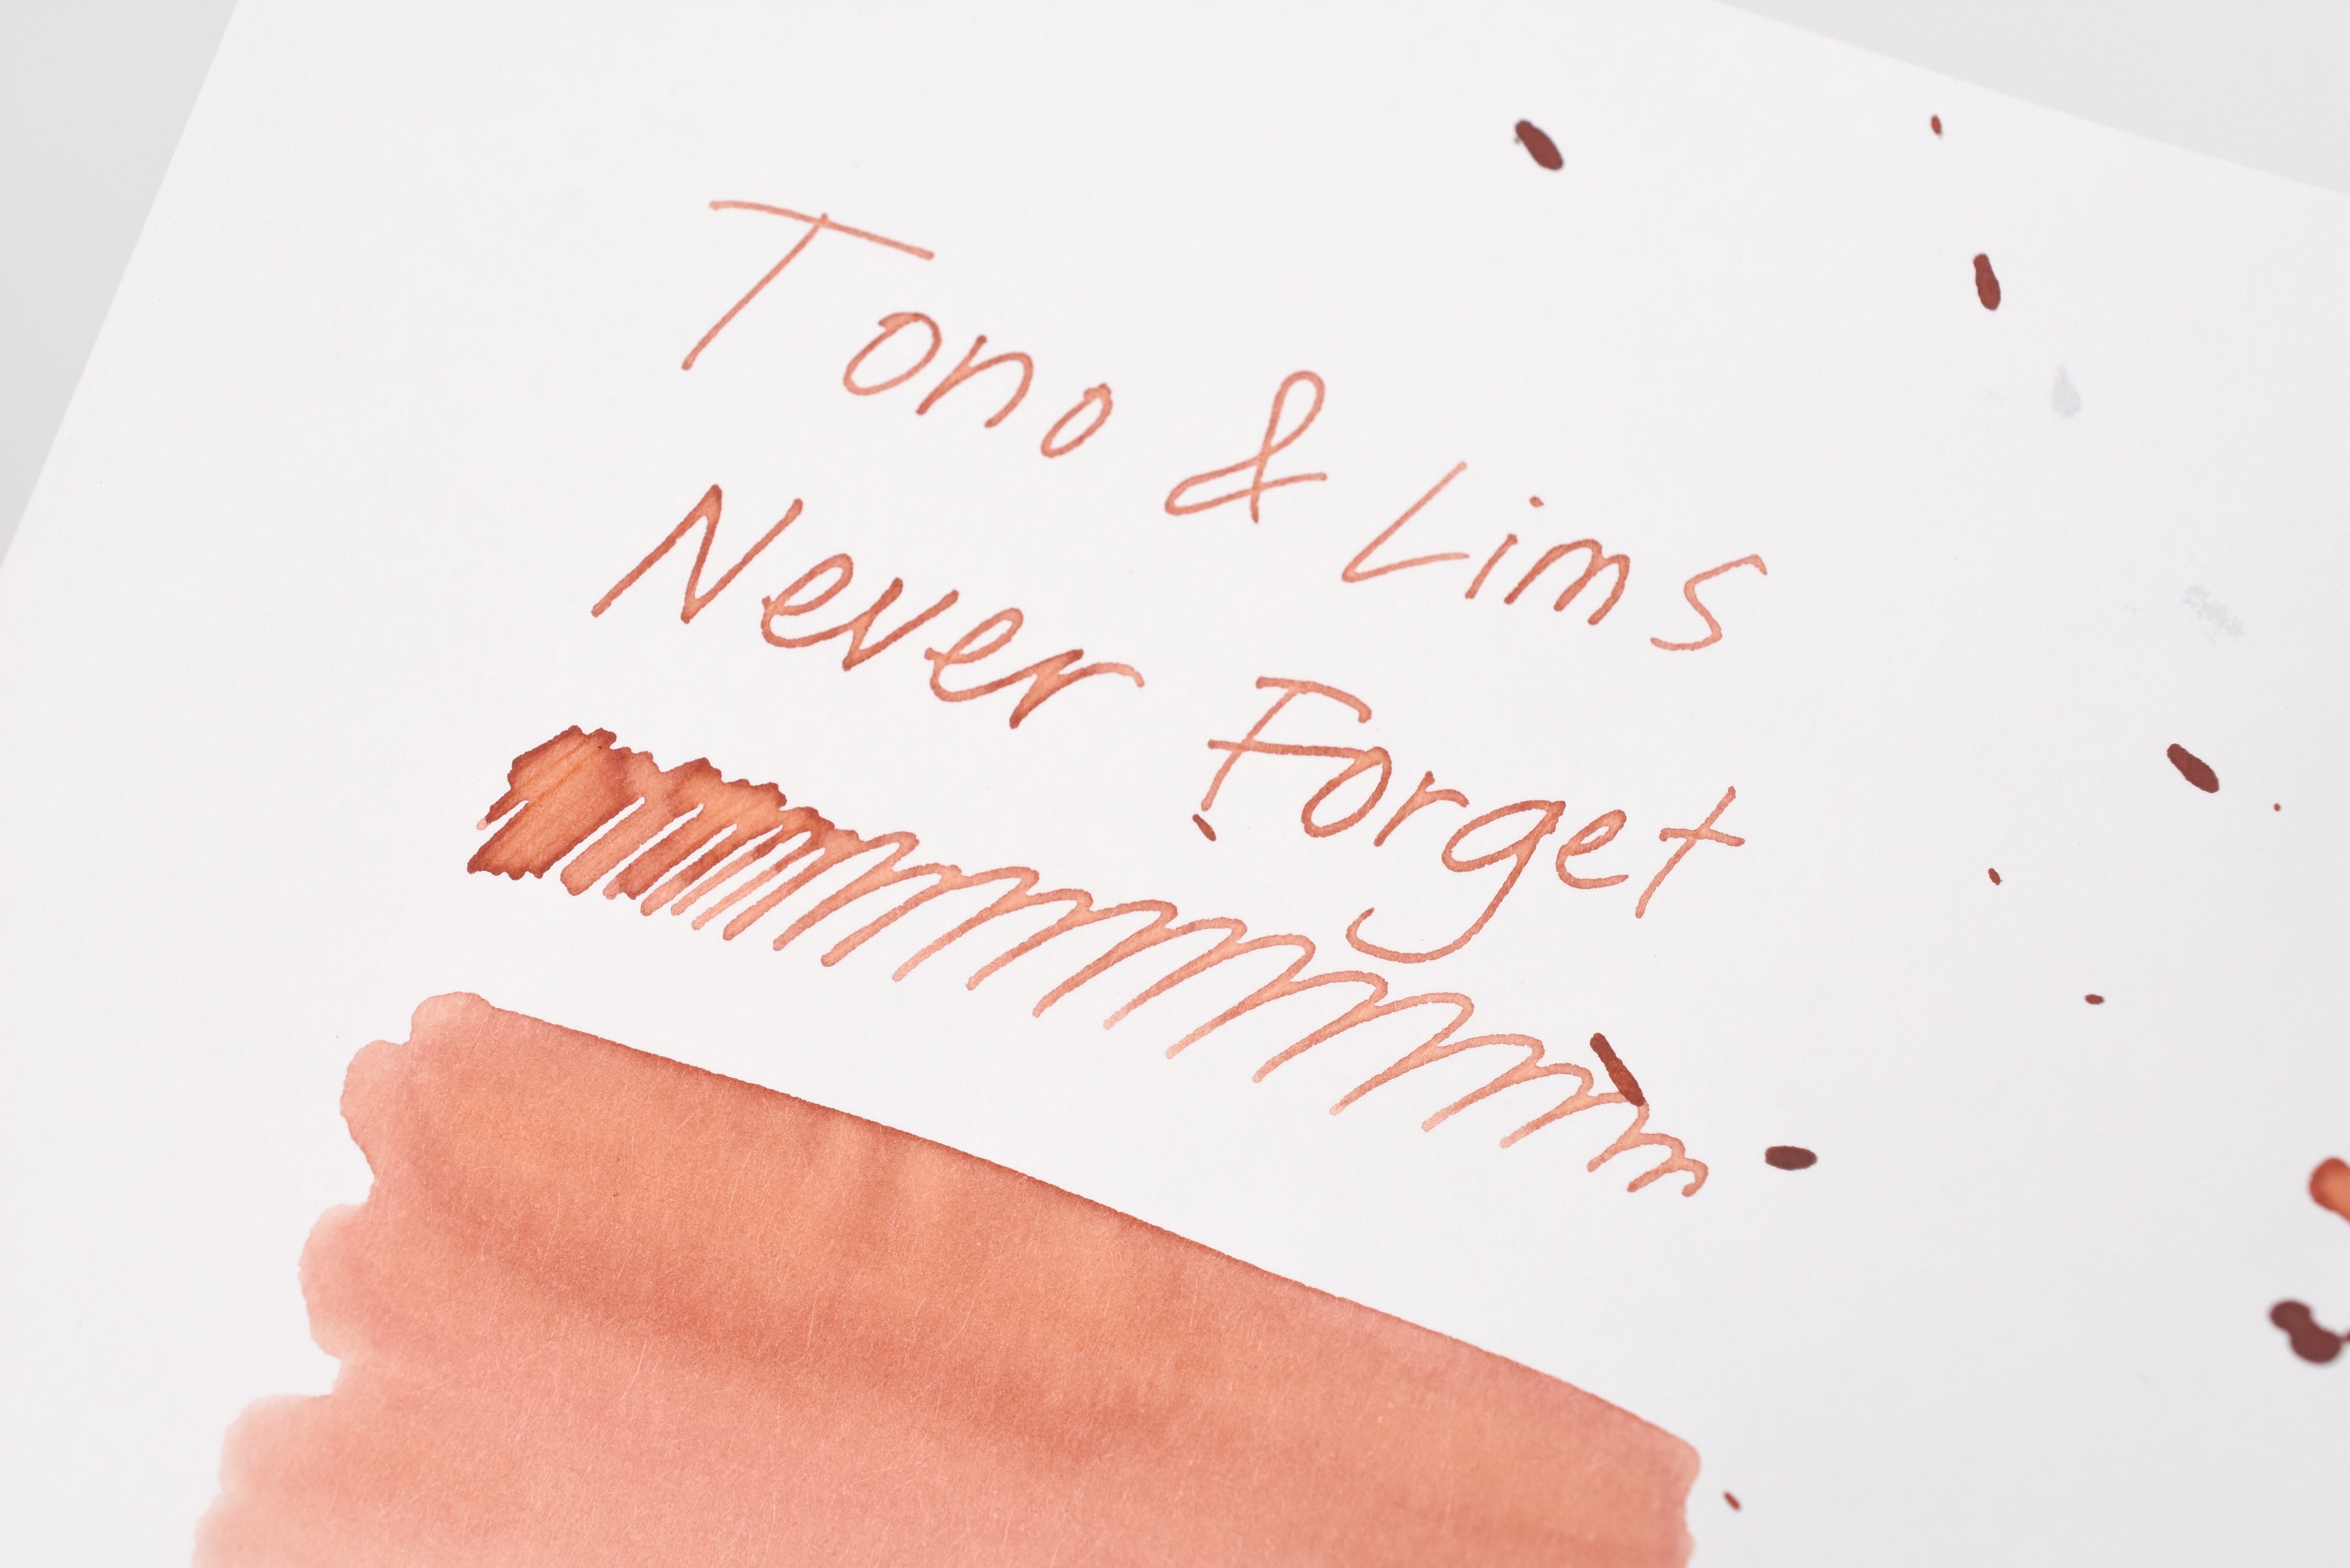 Tono & Lims
Never Forget